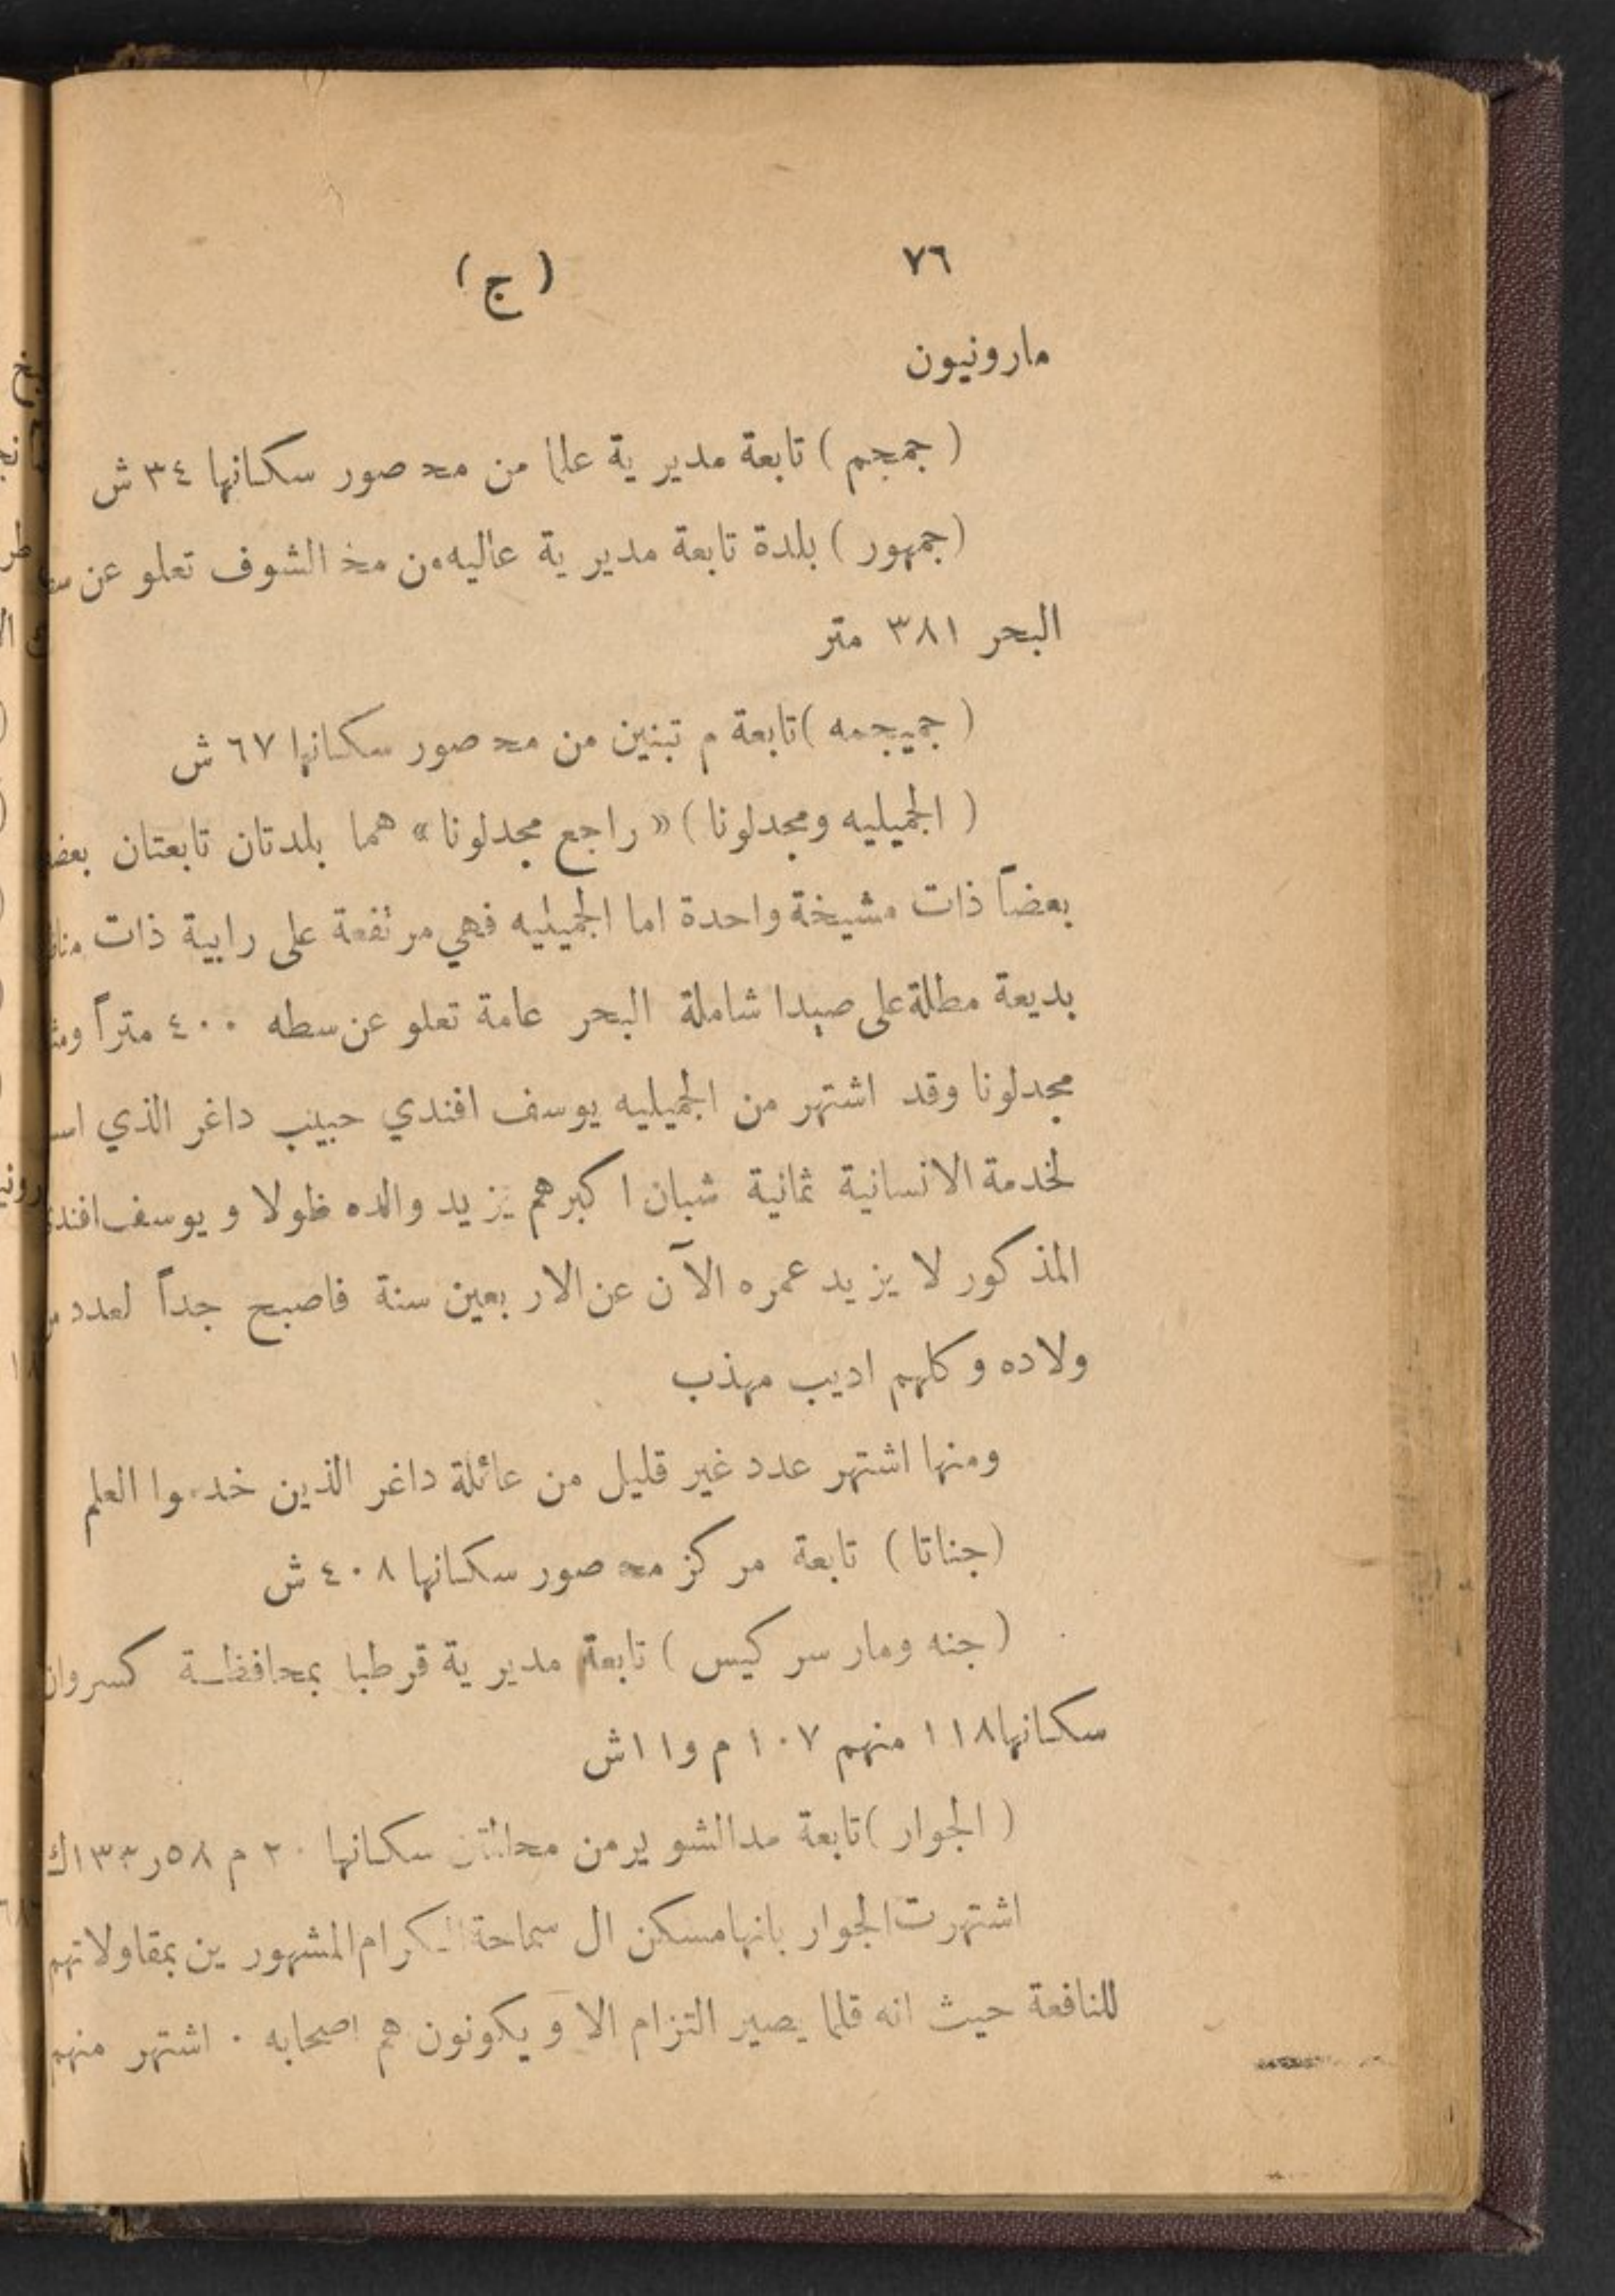 ٧٦
( ج )
مارونيون
( جمجم ) تابعة مديرية علما من محـ صور سكانها ٣٤ ش
(جمهور ) بلدة تابعة مديرية عاليه من محـ الشوف تعلو عن
البحر ٣٨١ متر
( جميجمه )تابعة م تبنين من محـ صور سكانها ٦٧ ش
( الجميليه ومجدلونا ) « راجع مجدلونا » هما بلدتان تابعتان
بعضاً ذات مشيخة واحدة اما الجميليه فهي مرتفعة على رابية ذات
بديعة مطلة على صيدا شاملة البحر عامة تعلو عن سطه ٤٠٠ متراً
مجدلونا وقد اشتهر من الجميليه يوسف افندي حبيب داغر الذي
لخدمة الانسانية ثمانية شبان اكبرهم يزيد والده طولا ويوسف
المذكور لا يزيد عمره الآن عن الاربعين سنة فاصبح جداً لعدد
ولاده وكلهم اديب مهذب
ومنها اشتهر عدد غير قليل من عائلة داغر الذين خدموا العلم
(جناتا ) تابعة مركز محـ صور سكانها ٤٠٨ ش
( جنه ومار سركيس ) تابعة مديرية قرطبا بمحافظة كسروان
سكانها ١١٨ منهم ١٠٧ م و١١ش
( الجوار )تابعة مدالشوير من سكانها ٢٠ م ٥٨ر ١٣٣ك
اشتهرت الجوار بانها مسكن ال سماحة الكرام المشهورين بمقاولاتهم
للنافعة حيث انه قلما يصير التزام الا ويكونون هم اصحابه ٠ اشتهر منهم